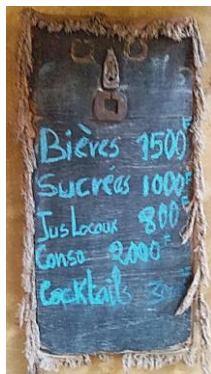 Bières 1500F
Sucrées 1000F
Jus Locaux 800F
Conso 2000F
Cocktails